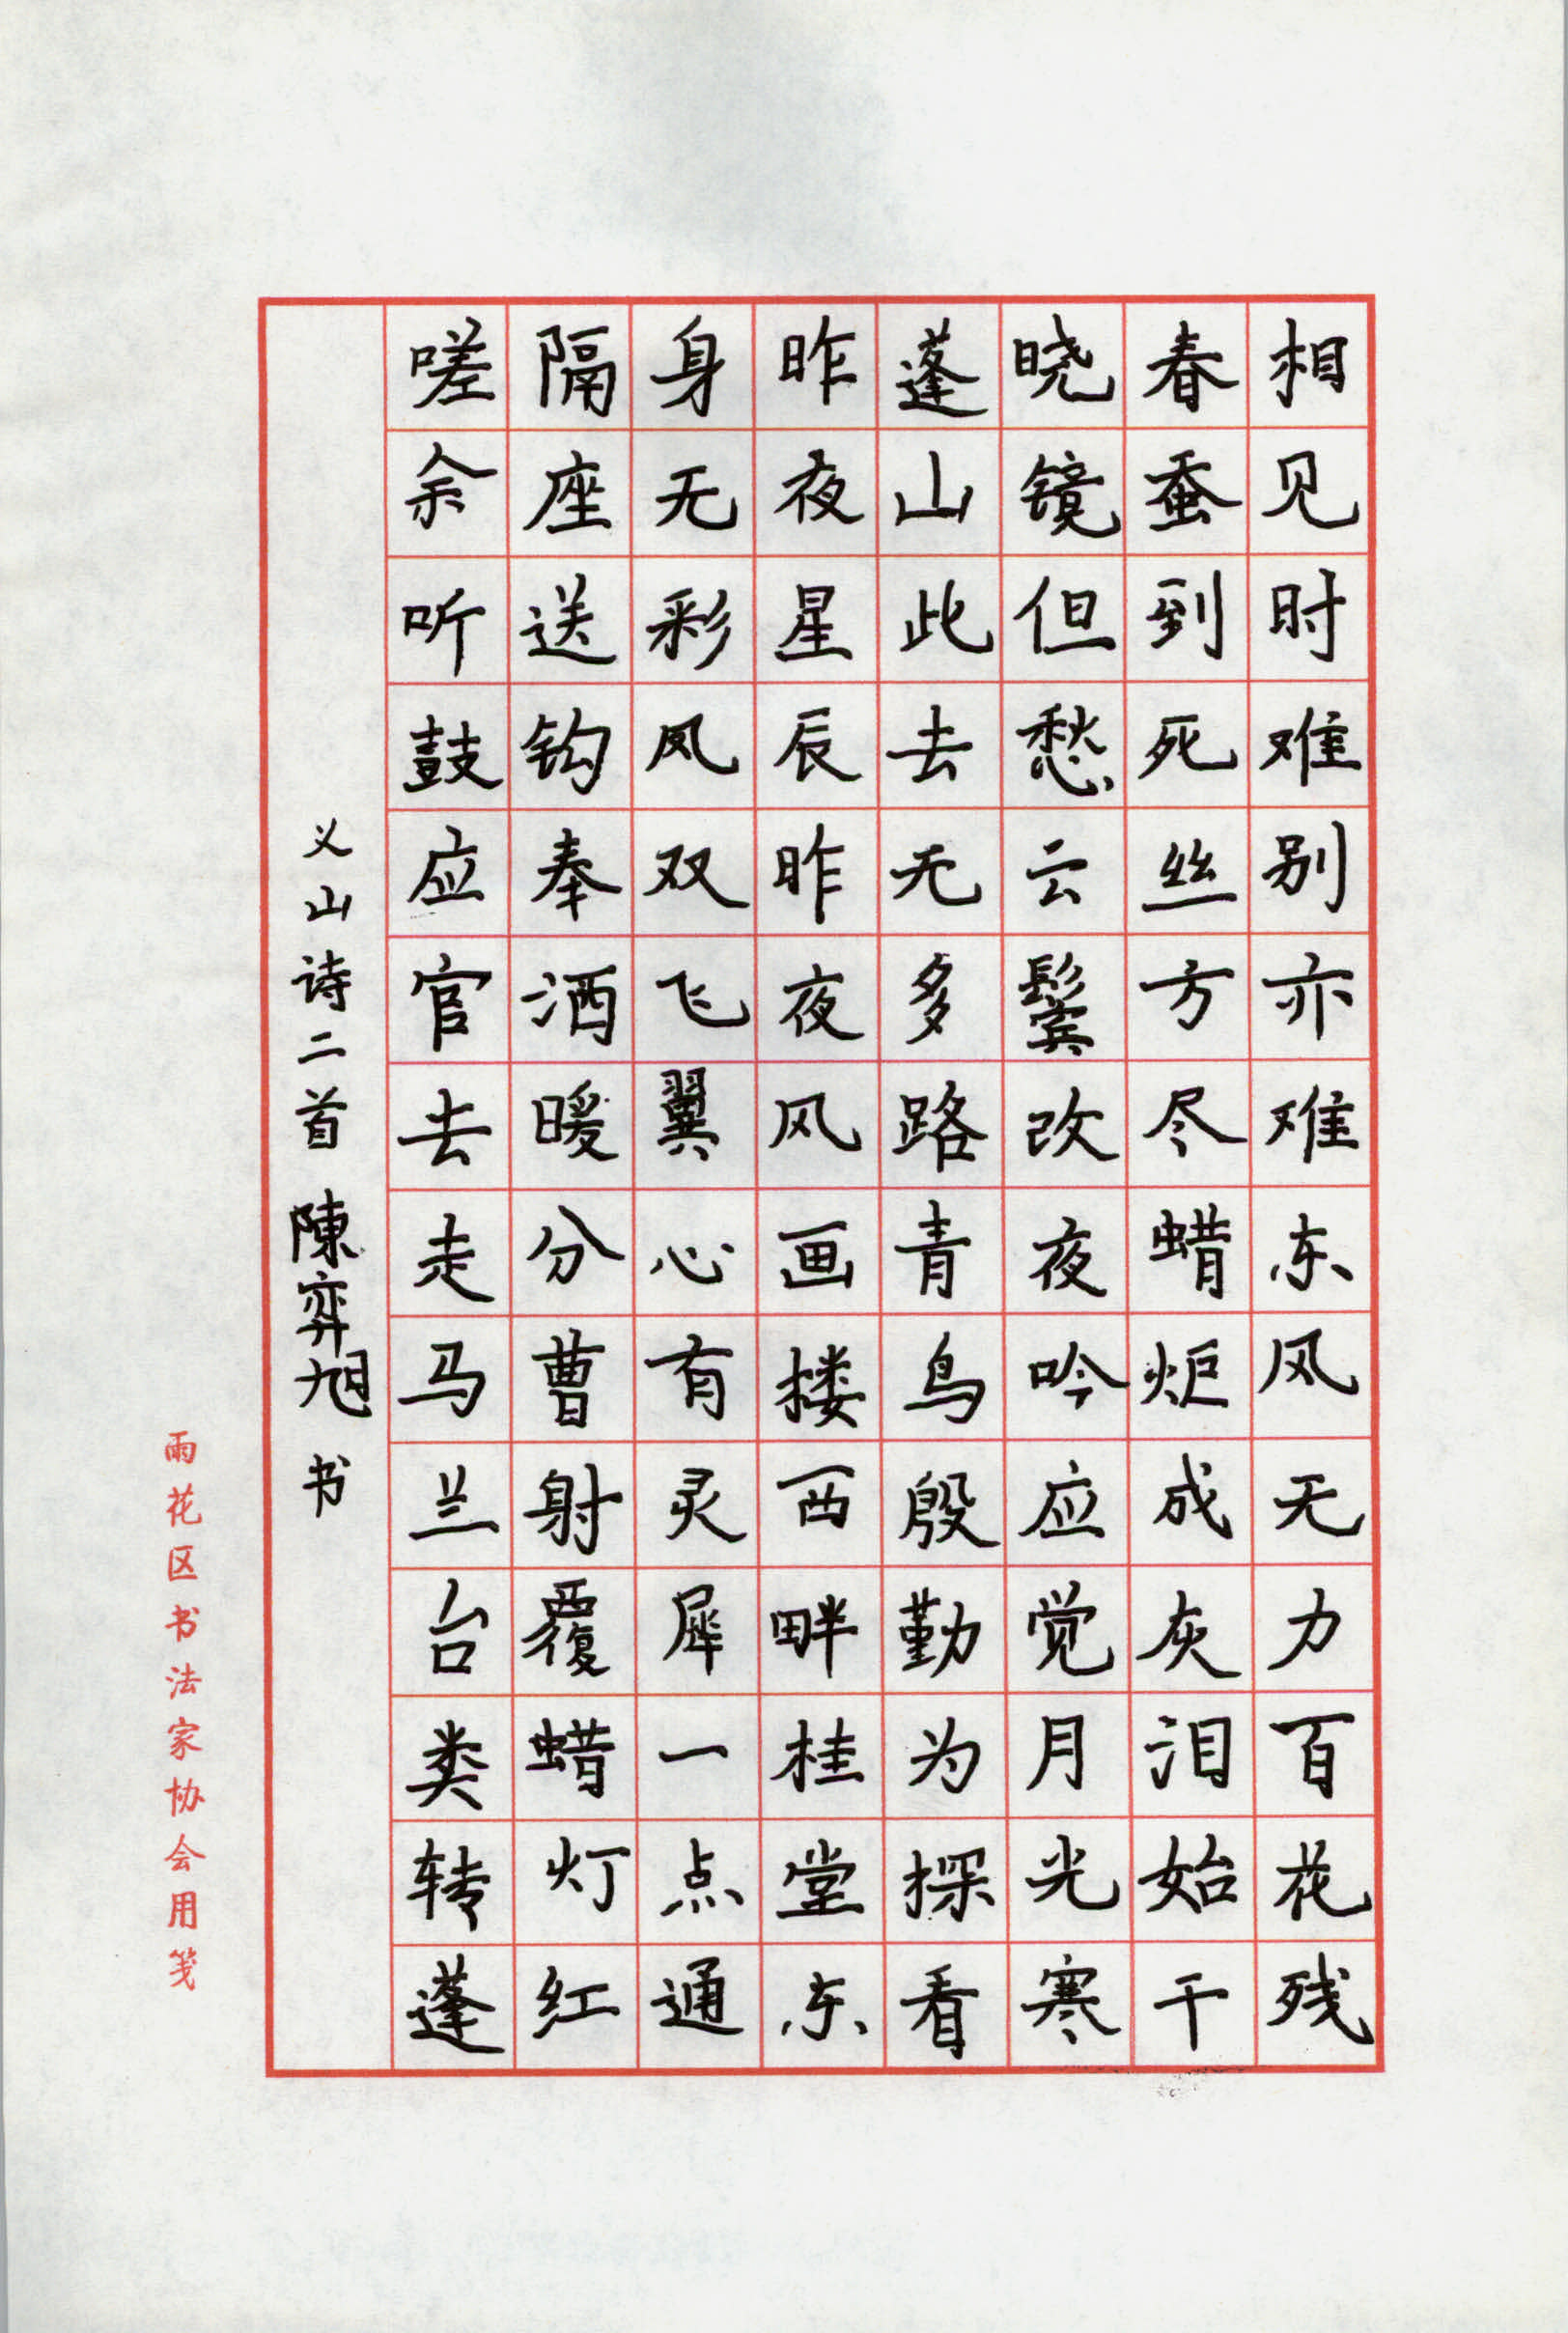 相见时难别亦难东风无力百花残
春蚕到死丝方尽蜡炬成灰泪始干
晓镜但愁云鬓改夜吟应觉月光寒
蓬山此去无多路青鸟殷勤为探看
昨夜星辰昨夜风画楼西畔桂堂东
身无彩凤双飞翼心有灵犀一点通
隔座送钩奉酒暖分曹射覆蜡灯红
嗟余听鼓应官去走马兰台类转蓬
义山诗二首 陳弈旭 书
雨花区书法家协会用笺